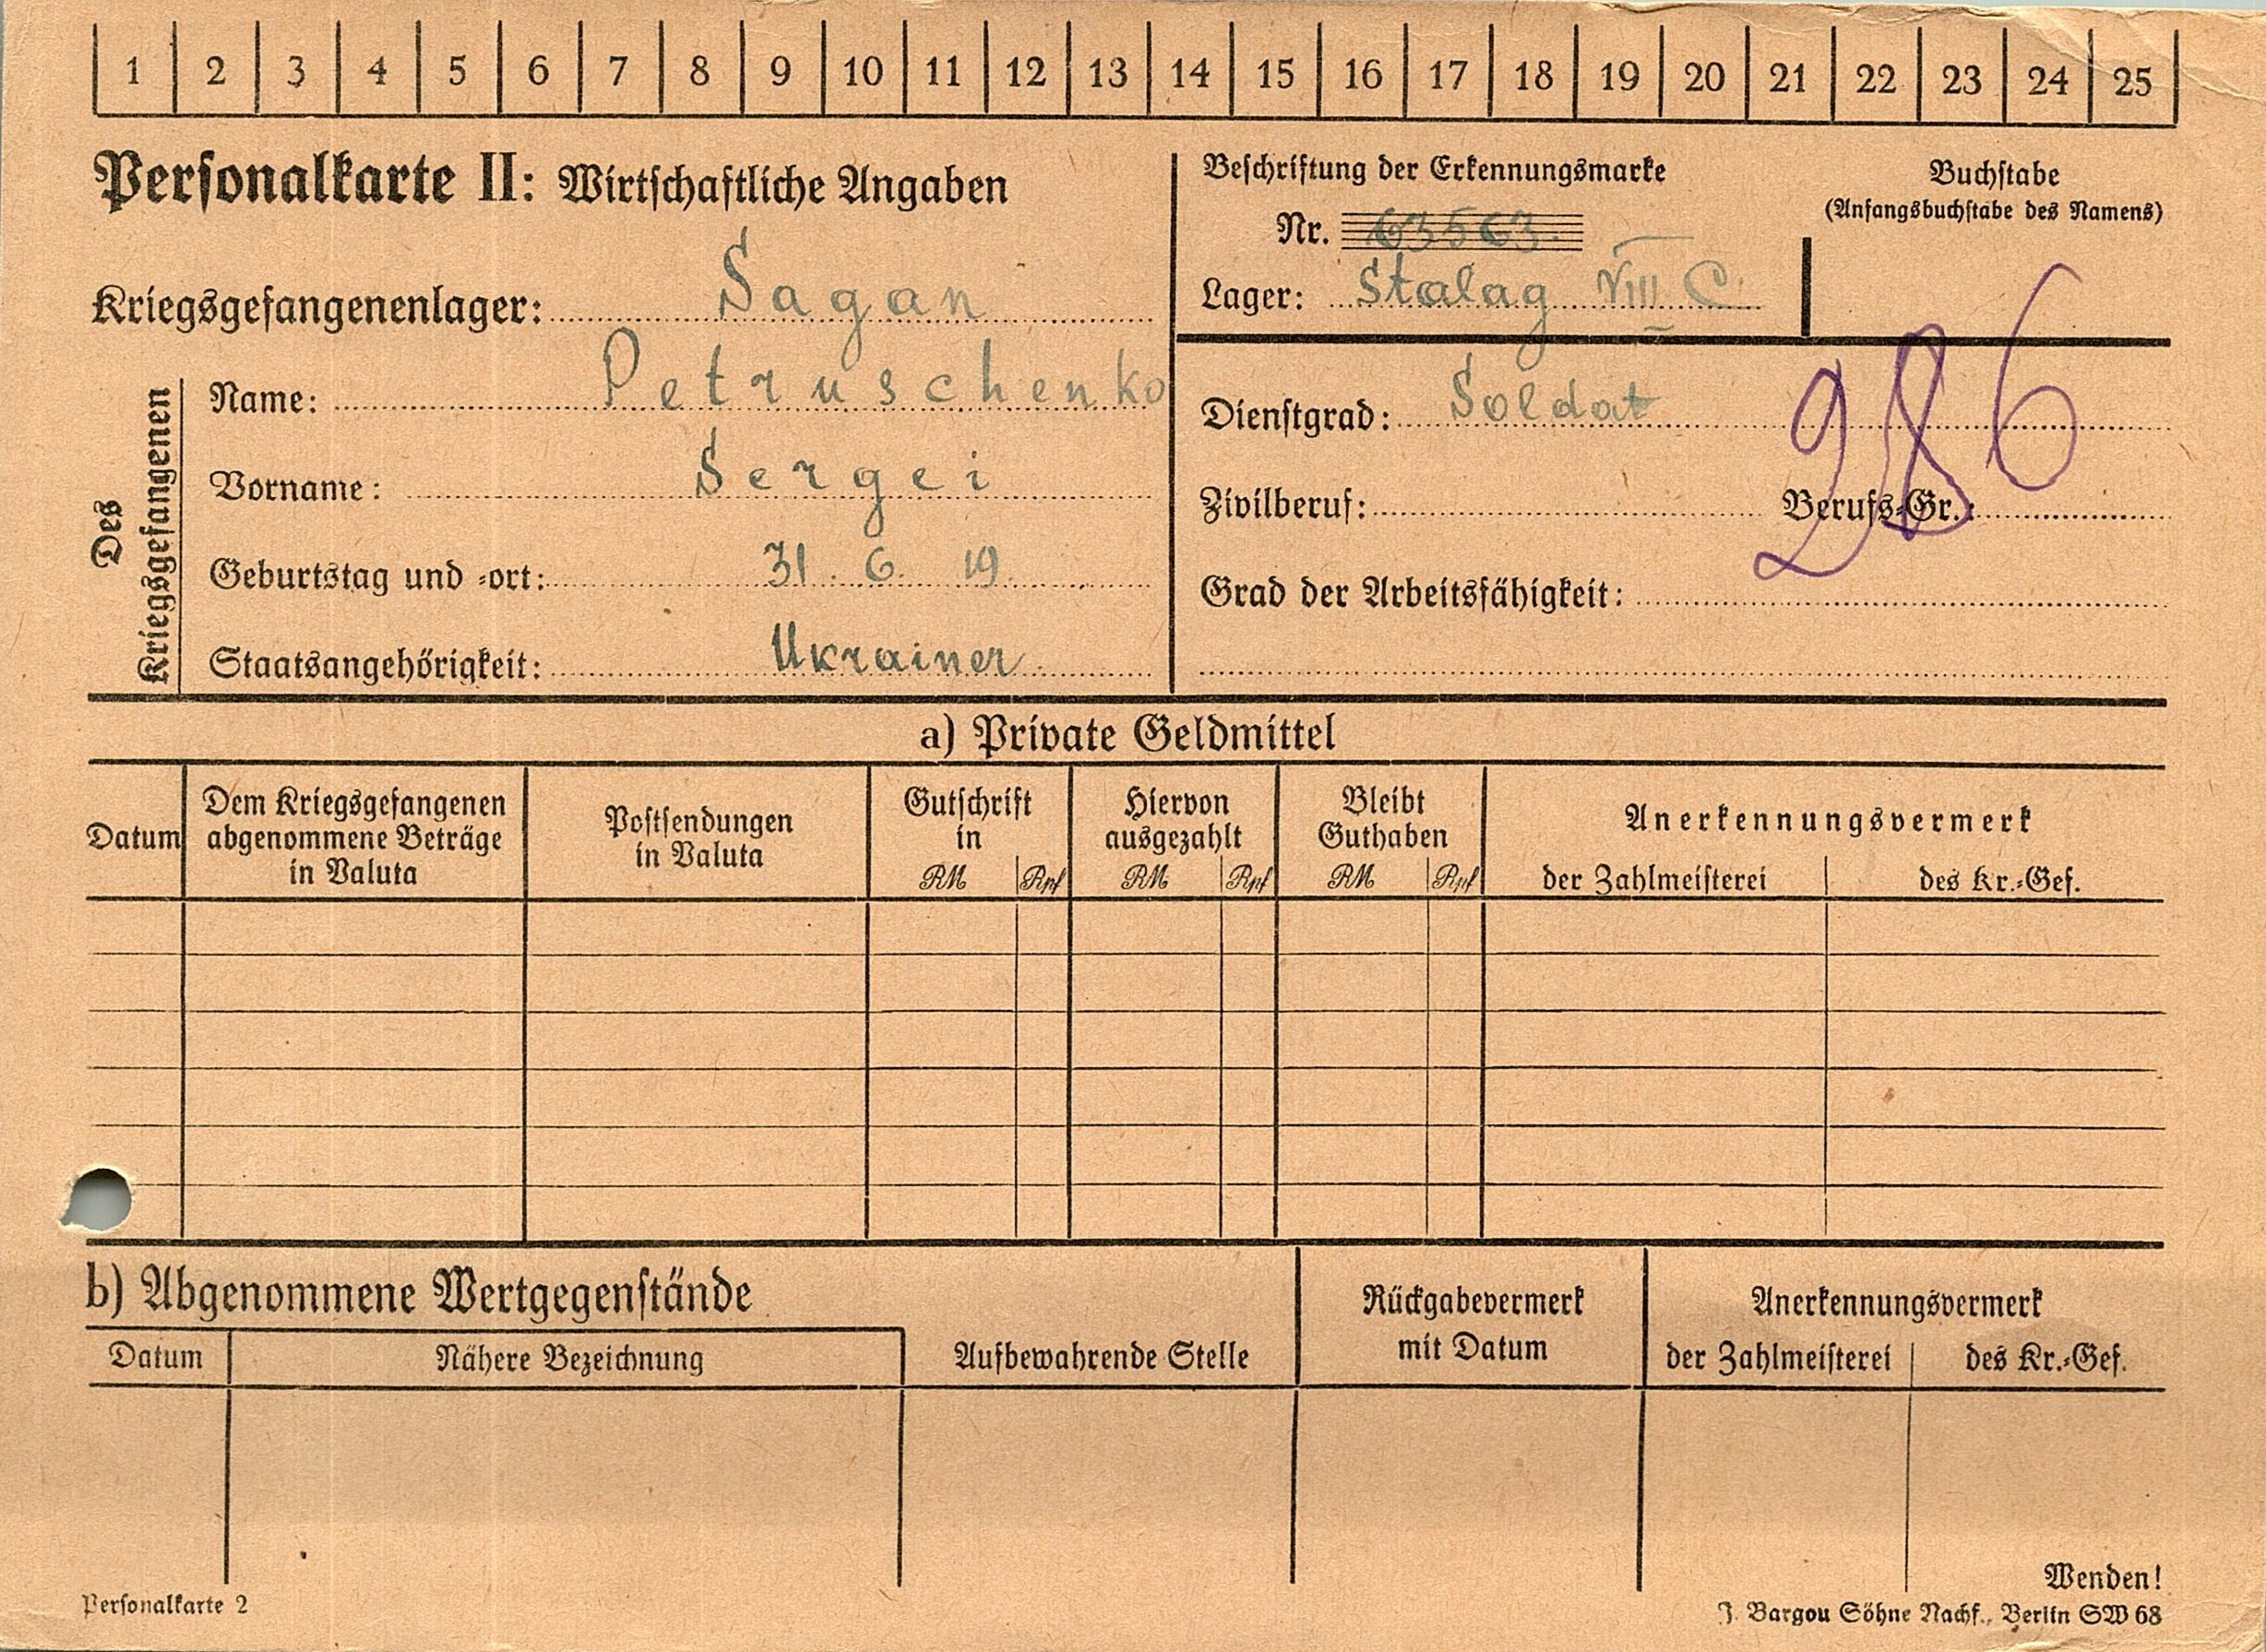 1 2 3 4 5 6 7 8 9 10 11 12 13 14 15 16 17 18 19 20 21 22 23 24 25
Personalkarte II: Wirtschaftliche Angaben
Kriegsgefangenenlager: Sagan
Des Kriegsgefangenen
Name: Petruschenko
Vorname: Sergei
Geburtstag und -ort: 31. 6. 19.
Staatsangehörigkeit: Ukrainer
Beschriftung der Erkennungsmarke
Nr. 63563.
Lager: Stalag VIII C
Buchstabe
(Anfangsbuchstabe des Namens)
Dienstgrad: Soldat
286
Zivilberuf: Berufs-Gr.:
Grad der Arbeitsfähigkeit:
a) Private Geldmittel
Datum
Dem Kriegsgefangenen
abgenommene Beträge
in Valuta
Postsendungen
in Valuta
Gutschrift
in
RM Rpf
Hiervon
ausgezahlt
RM Rpf
Bleibt
Guthaben
RM Rpf
Anerkennungsvermerk
der Zahlmeisterei des Kr.-Gef.
b) Abgenommene Wertgegenstände
Datum Nähere Bezeichnung
Aufbewahrende Stelle
Rückgabevermerk
mit Datum
Anerkennungsvermerk
der Zahlmeisterei des Kr.-Gef.
Wenden!
Personalkarte 2
J. Bargou Söhne Nachf., Berlin SW 68